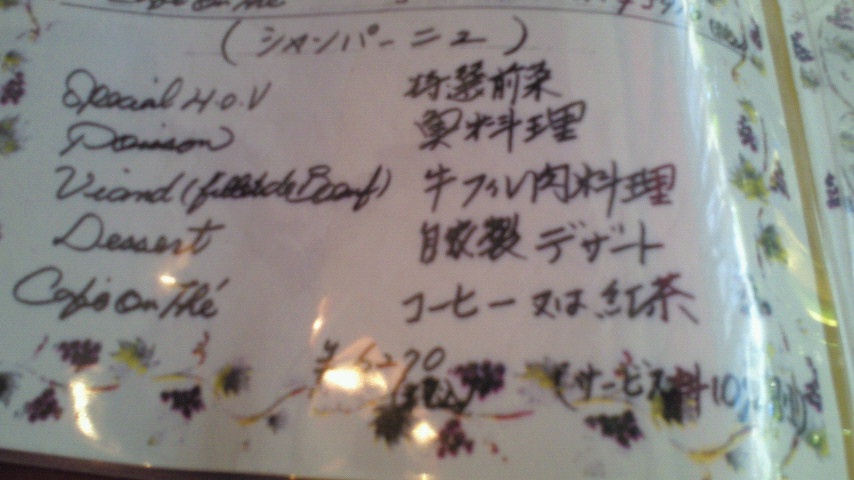 (シャンパーニュ)
Special H.O.V 特選前菜
Poisson 魚料理
Viand (fillet de Boeuf) 牛フィレ肉料理
Dessert 自家製デザート
Café ou thé コーヒー又は紅茶
(サービス料10%別)